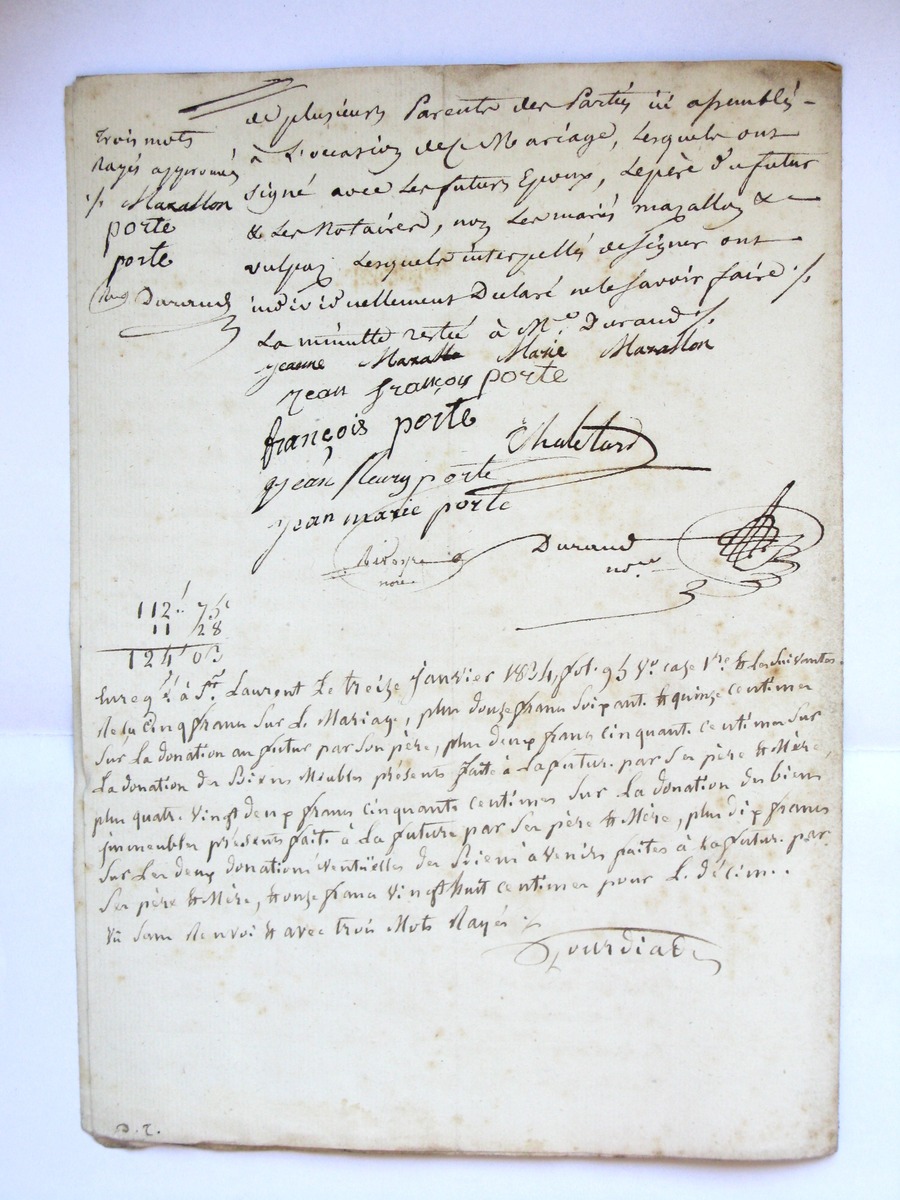 de plusieurs Parents des Parties ici assemblés
à L'occasion de Ce Mariage, Lesquels ont
signé avec Les futurs Epoux, Le père Du futur
& Les Notaires, non Les mariés mazallon &
vulpas Lesquels interpellés de signer ont
individuellement Déclaré ne le savoir faire ·/.
La minutte restée à Me. Durand ·/.
trois mots
Rayés approuvés
·/. Mazallon
porte
porte
Durand
jeanne Mazallon Marie Mazallon
jean françois porte
françois porte
Chaletard
jean fleury porte
jean marie porte
Durand
nore
nore
112f 75c
11 28
124f 03
Enregté à St Laurent Le treize janvier 1834, fol. 95 Vo case 1re & les suivantes
Reçu cinq francs sur Le Mariage, plus douze francs soixante & quinze centimes
sur La donation au futur par son père, plus deux francs cinquante centimes sur
La donation des Biens Meubles présents faite à La future par ses père & Mère,
plus quatre vingt deux francs cinquante centimes sur La donation des biens
immeubles présents faite à La future par ses père & Mère, plus dix francs
sur Les deux donations éventuelles des Biens à venir faites à La future par
ses père & Mère, & onze francs vingt huit centimes pour Le décime.
Vu sans Renvoi & avec trois Mots Rayés ·/.
D. T.